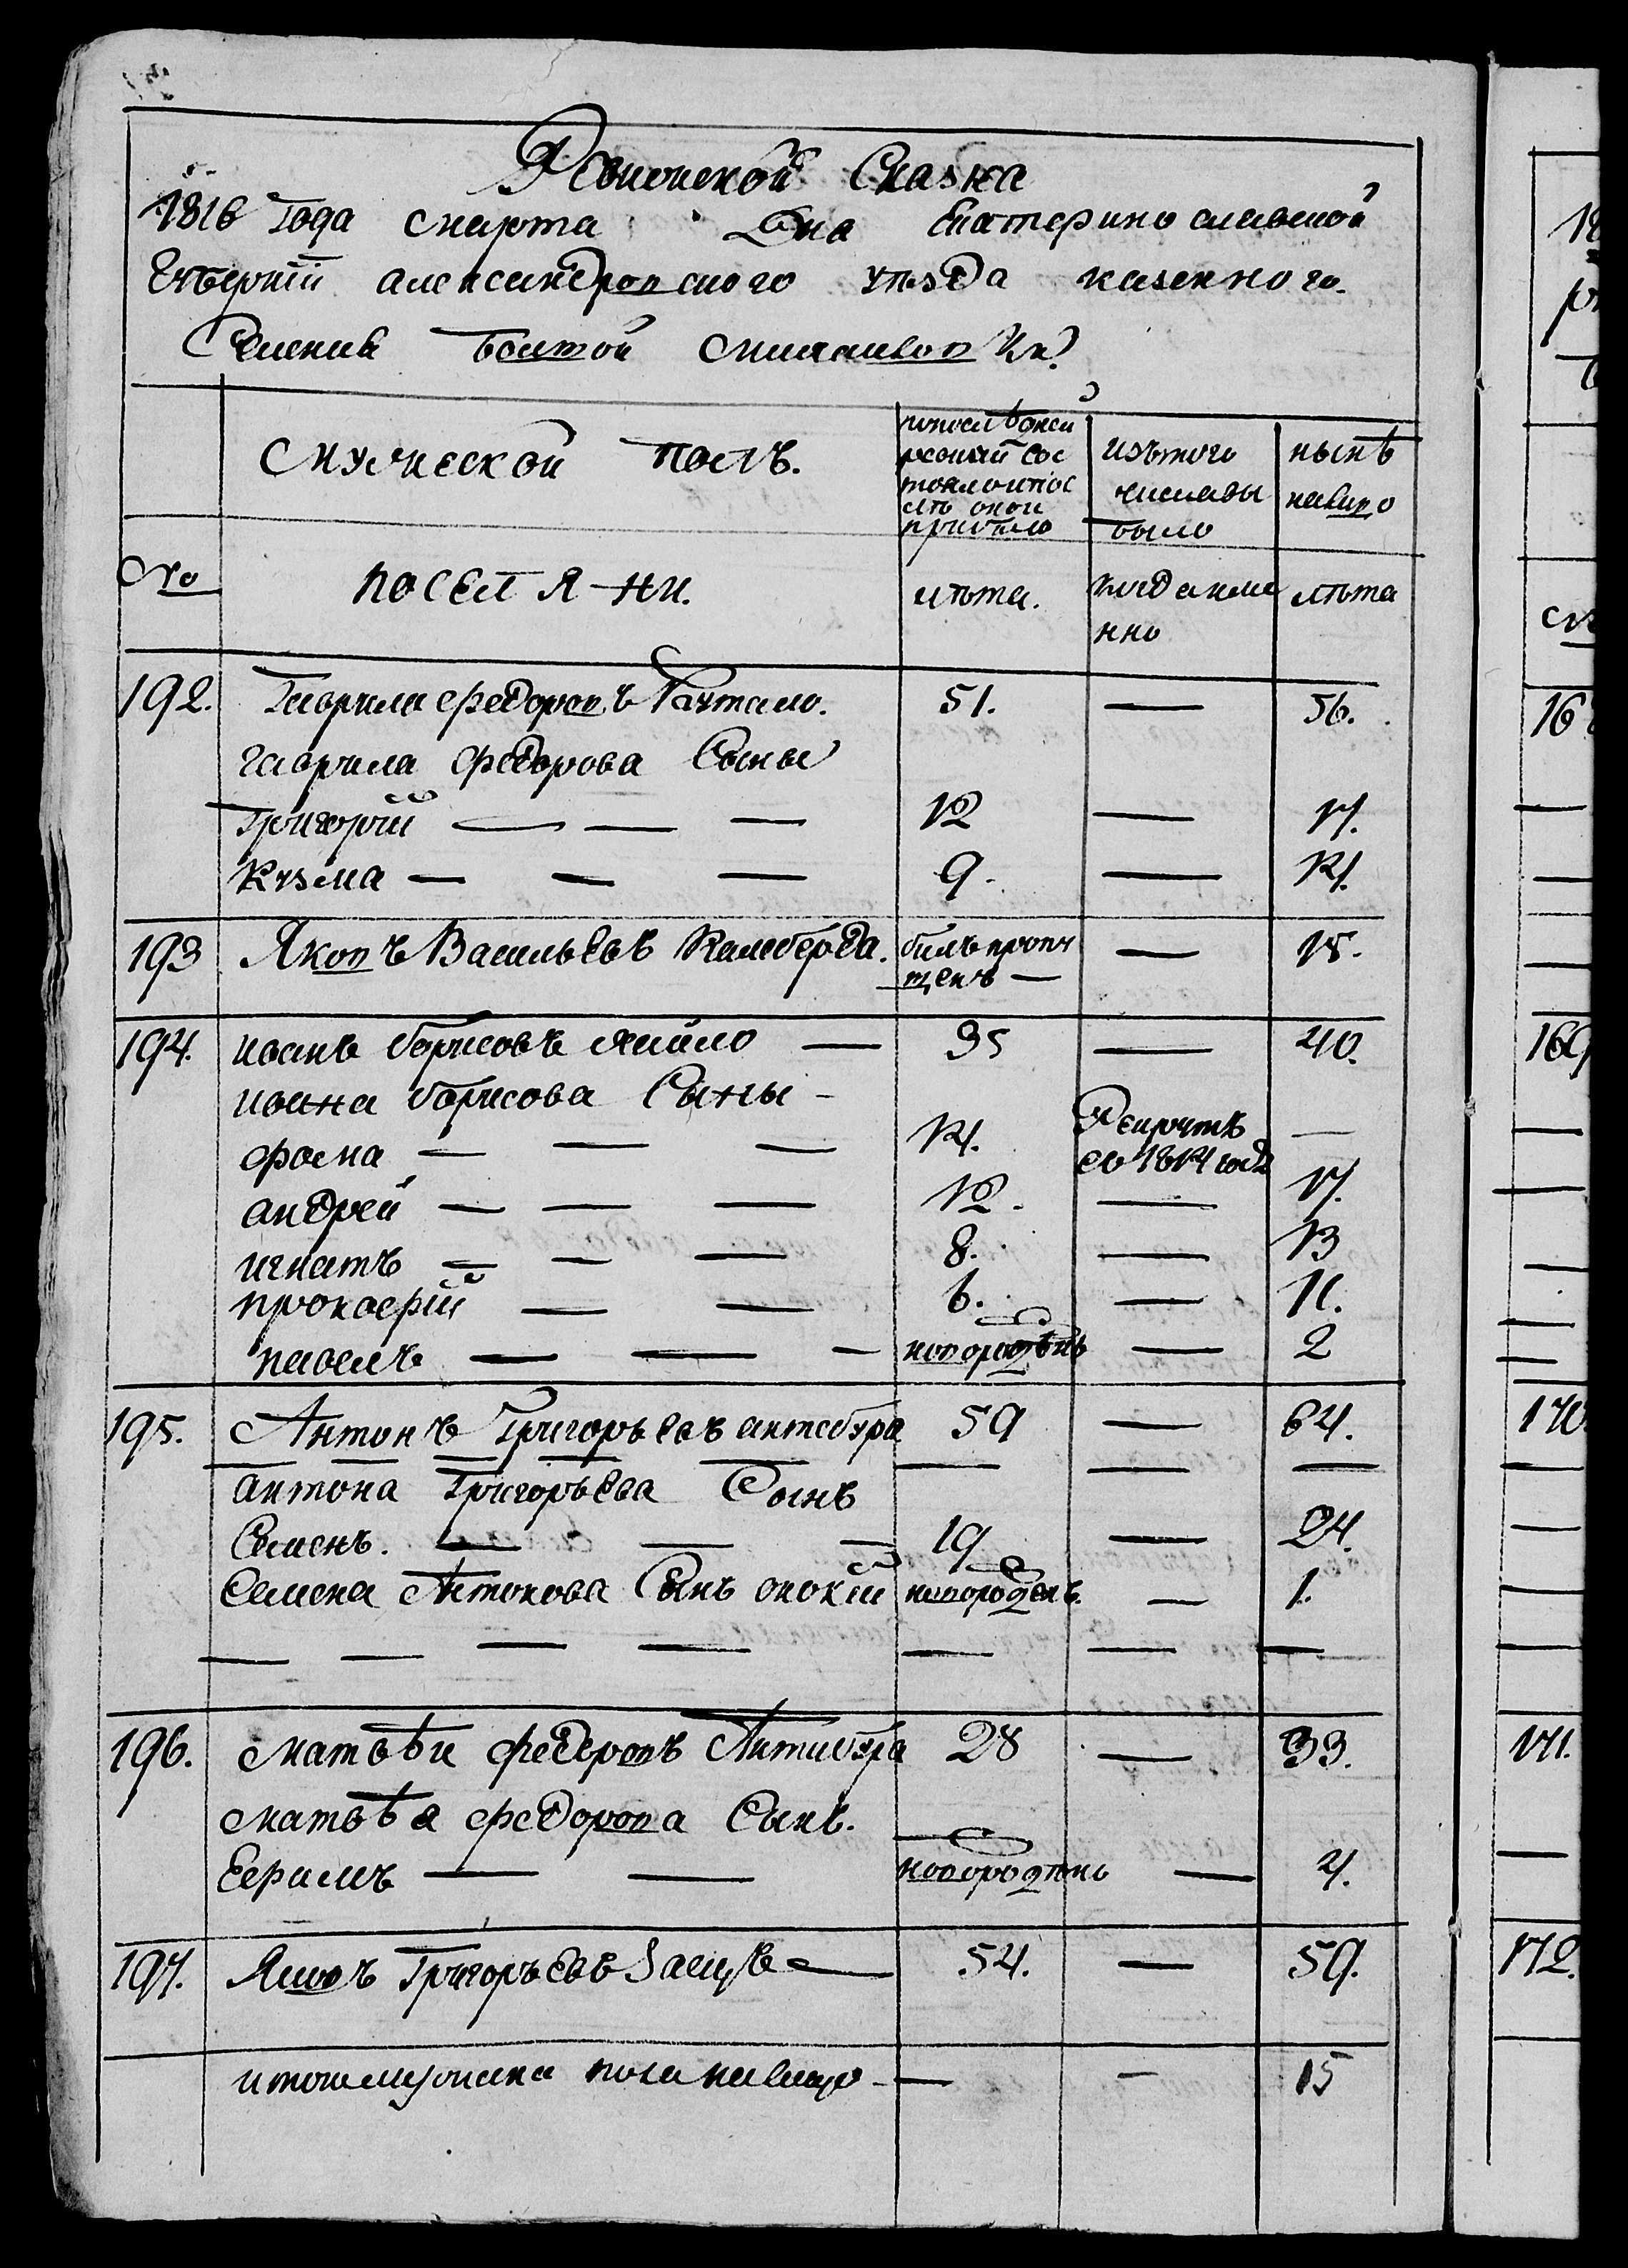 Ревиской Сказка
1816 Года Марта Дня Екатеринославской
Губернїи александровского уезда казенного
Селения болтой Михаиловки
Мужеской полъ.
попоследней ревизий состояло и после оной прибыло
изътого числавы было
нынѣ налицо
№ поселяни. лѣта. когдаименно лѣта
192. Гаврила федоровъ Кутало. 51. — 56.
гаврила федорова Сыны
Григорїй — — — 12 — 17.
Кузма — — — 9. — 14.
193 Яковъ Васильевъ Калеберда. билъ пропущенъ — — 18.
194. иванъ борисовъ — 35 — 40.
ивана борисова Сыны -
фома — — — 14. Рекрутъ во 1814 года —
андрей — — — 12. — 17.
игнатъ — — — 8. — 13
прокофїй — — 6. — 11.
павелъ — — — новорожденъ — 2
195. Антонъ Григорьевъ антебура 59 — 64.
антона Григорьева Сынъ
Семенъ. — — — 19 — 24.
Семена Антонова Сынъ новорожденъ. — 1.
— — — — — — —
196. Матвѣи федоровъ Антибура 28 — 33.
Матвѣя федорова Сынъ.
Ефимъ — — новорожденъ — 4.
197. Яковъ Григорьевъ Заецъ — 54. — 59.
итого мужеска пола налицо — — 15
16
169
170.
171.
172.